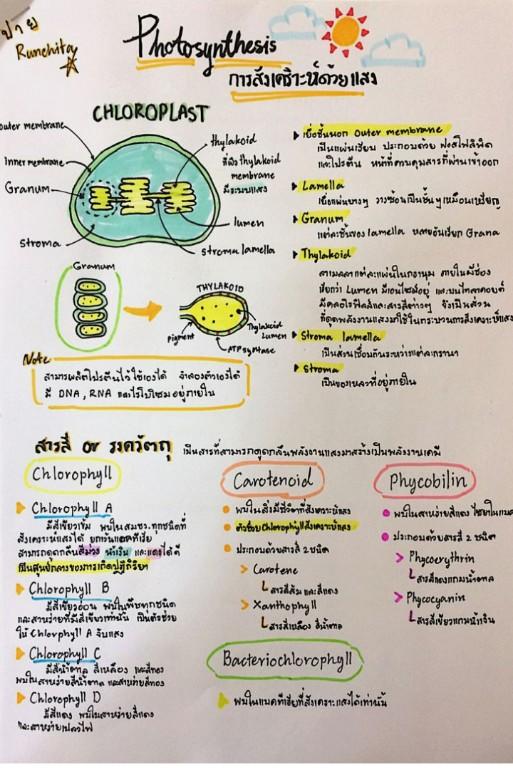 ปาย
Runchitay
Photosynthesis
การสังเคราะห์ด้วยแสง
CHLOROPLAST
outer membrane
Inner membrane
Granum
stroma
thylakoid
ที่ผิว thylakoid
membrane
มีระบบแสง
lumen
stroma lamella
Granum
THYLAKOID
pigment
Thylakoid
Lumen
ATP synthase
Note
สามารถผลิตโปรตีนไว้ใช้เองได้ จำลองตัวเองได้
มี DNA, RNA และไรโบโซมอยู่ภายใน
เยื่อชั้นนอก Outer membrane
เป็นแผ่นเรียบ ประกอบด้วย ฟอสโฟลิพิด
และโปรตีน หน้าที่ควบคุมสารที่ผ่านเข้าออก
Lamella
เยื่อแผ่นบางๆ วางซ้อนเป็นชั้นๆเหมือนเหรียญ
Granum
แต่ละชั้นของ lamella หลายอันเรียก Grana
Thylakoid
ลามลลาแต่ละแผ่นในกรานุม ภายในมีช่อง
เรียกว่า Lumen มีเอนไซม์อยู่ และบนไทลาคอยด์
มีคลอโรฟิลล์และสารสีต่างๆ จึงเป็นส่วน
ที่ดูดพลังงานแสงมาใช้ในกระบวนการสังเคราะห์แสง
Stroma lamella
เป็นส่วนเชื่อมกันระหว่างแต่ละกรานา
Stroma
เป็นของเหลวที่อยู่ภายใน
สารสี or รงควัตถุ เป็นสารที่สามารถดูดกลืนพลังงานแสงมาสร้างเป็นพลังงานเคมี
Chlorophyll
Chlorophyll A
มีสีเขียวเข้ม พบในสมช.ทุกชนิดที่
สังเคราะห์แสงได้ ยกเว้นแบคทีเรีย
สามารถดูดกลืนสีม่วง น้ำเงิน และแดงได้ดี
เป็นศูนย์กลางของการเกิดปฏิกิริยา
Chlorophyll B
มีสีเขียวอ่อน พบในพืชทุกชนิด
และสาหร่ายที่มีสีเขียวเท่านั้น เป็นตัวช่วย
ให้ Chlorphyll A จับแสง
Chlorophyll C
มีสีน้ำตาล สีเหลือง และสีทอง
พบในสาหร่ายสีน้ำตาล และสาหร่ายสีทอง
Chlorophyll D
มีสีแดง พบในสาหร่ายสีแดง
และสาหร่ายเปลวไฟ
Carotenoid
พบในสิ่งมีชีวิตที่สังเคราะห์แสง
ตัวช่วย Chlorophyll สังเคราะห์แสง
ประกอบด้วยสารสี 2 ชนิด
Carotene
สารสีส้ม และสีแดง
Xanthophyll
สารสีเหลือง สีน้ำตาล
Bacteriochlorophyll
พบในแบคทีเรียที่สังเคราะแสงได้เท่านั้น
Phycobilin
พบในสาหร่ายสีแดง
ประกอบด้วยสารสี 2 ชนิด
Phycoerythrin
สารสีแดงแกมน้ำตาล
Phycocyanin
สารสีเขียวแกมน้ำเงิน